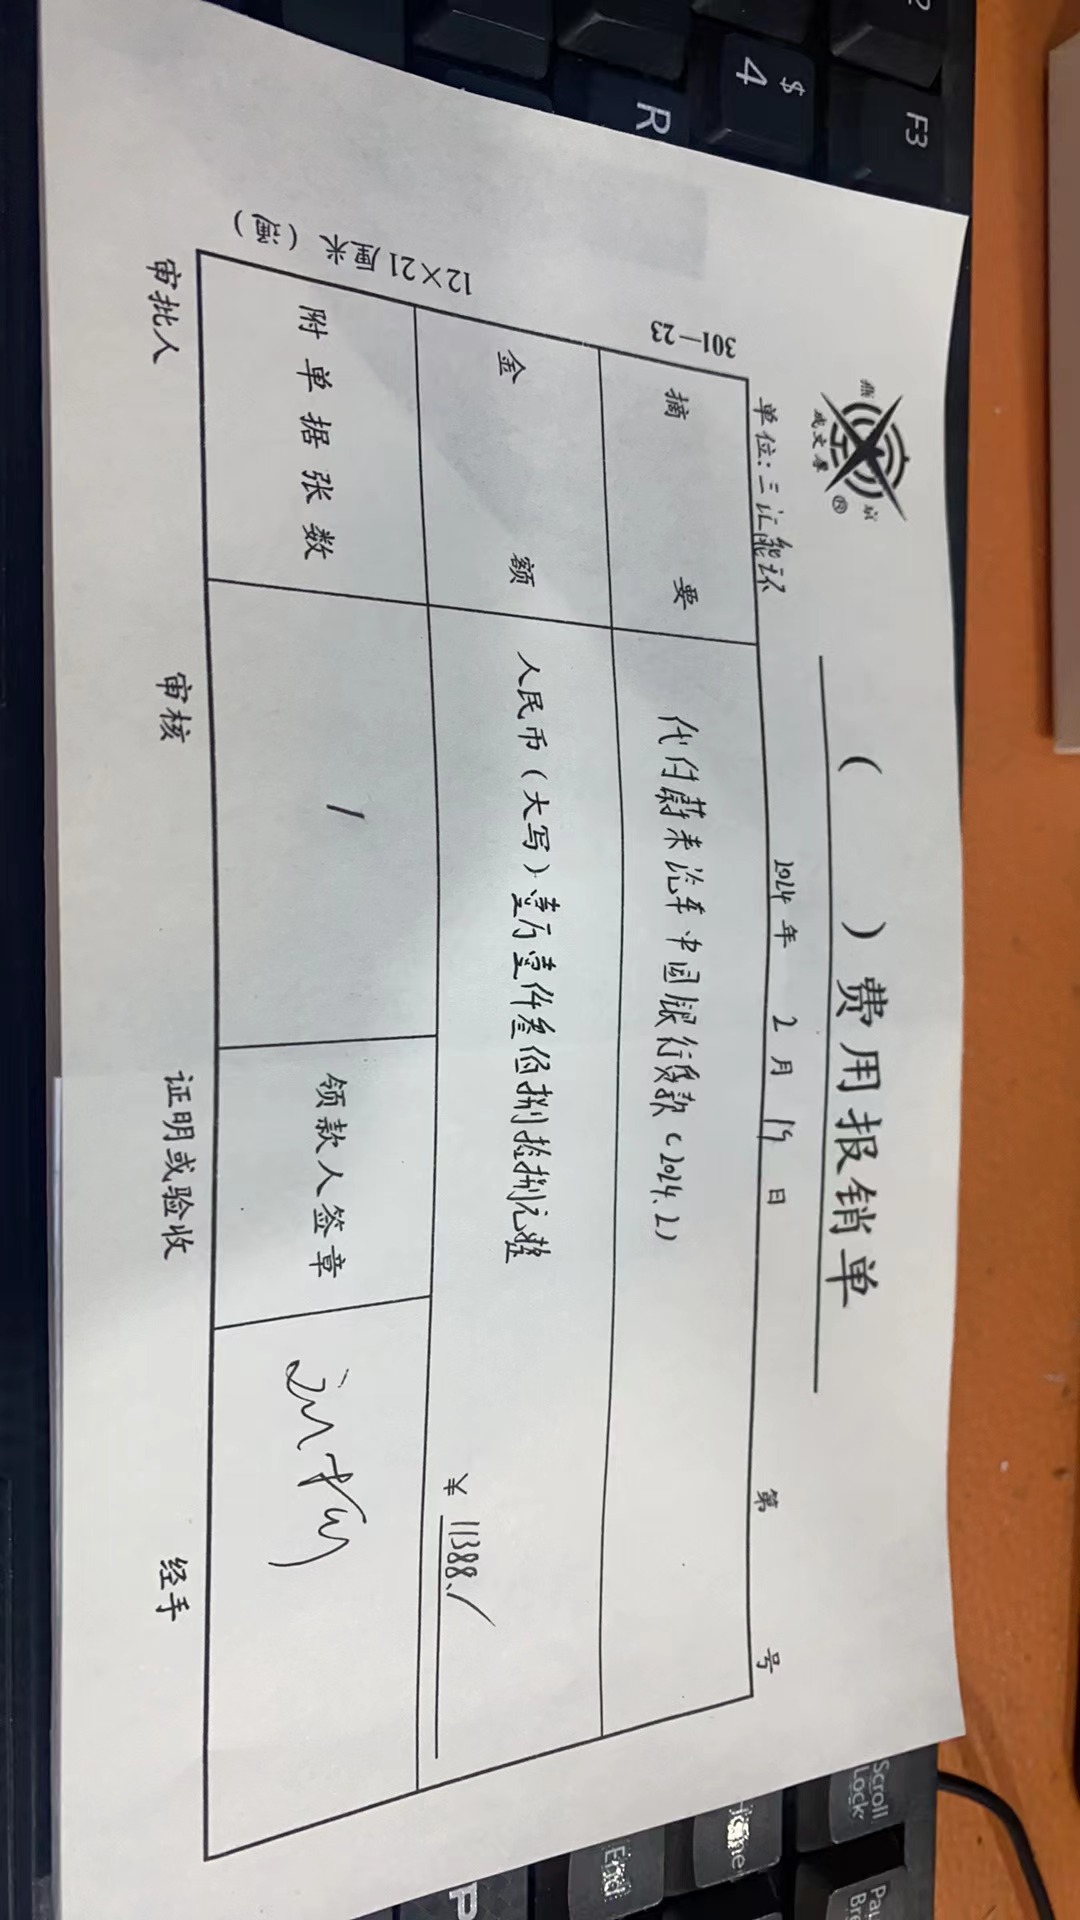 （　　）费用报销单
单位：三汇能环 2024 年 2 月 19 日 第 号
摘 要 代付蔚来汽车中国银行贷款（2024.2）
金 额 人民币（大写）壹万壹仟叁佰捌拾捌元整
¥ 11388.
附单据张数 1 领款人签章
审批人 审核 证明或验收 经手
301—23
12×21厘米
$
4
R
F3
Scroll
Lock
End
P